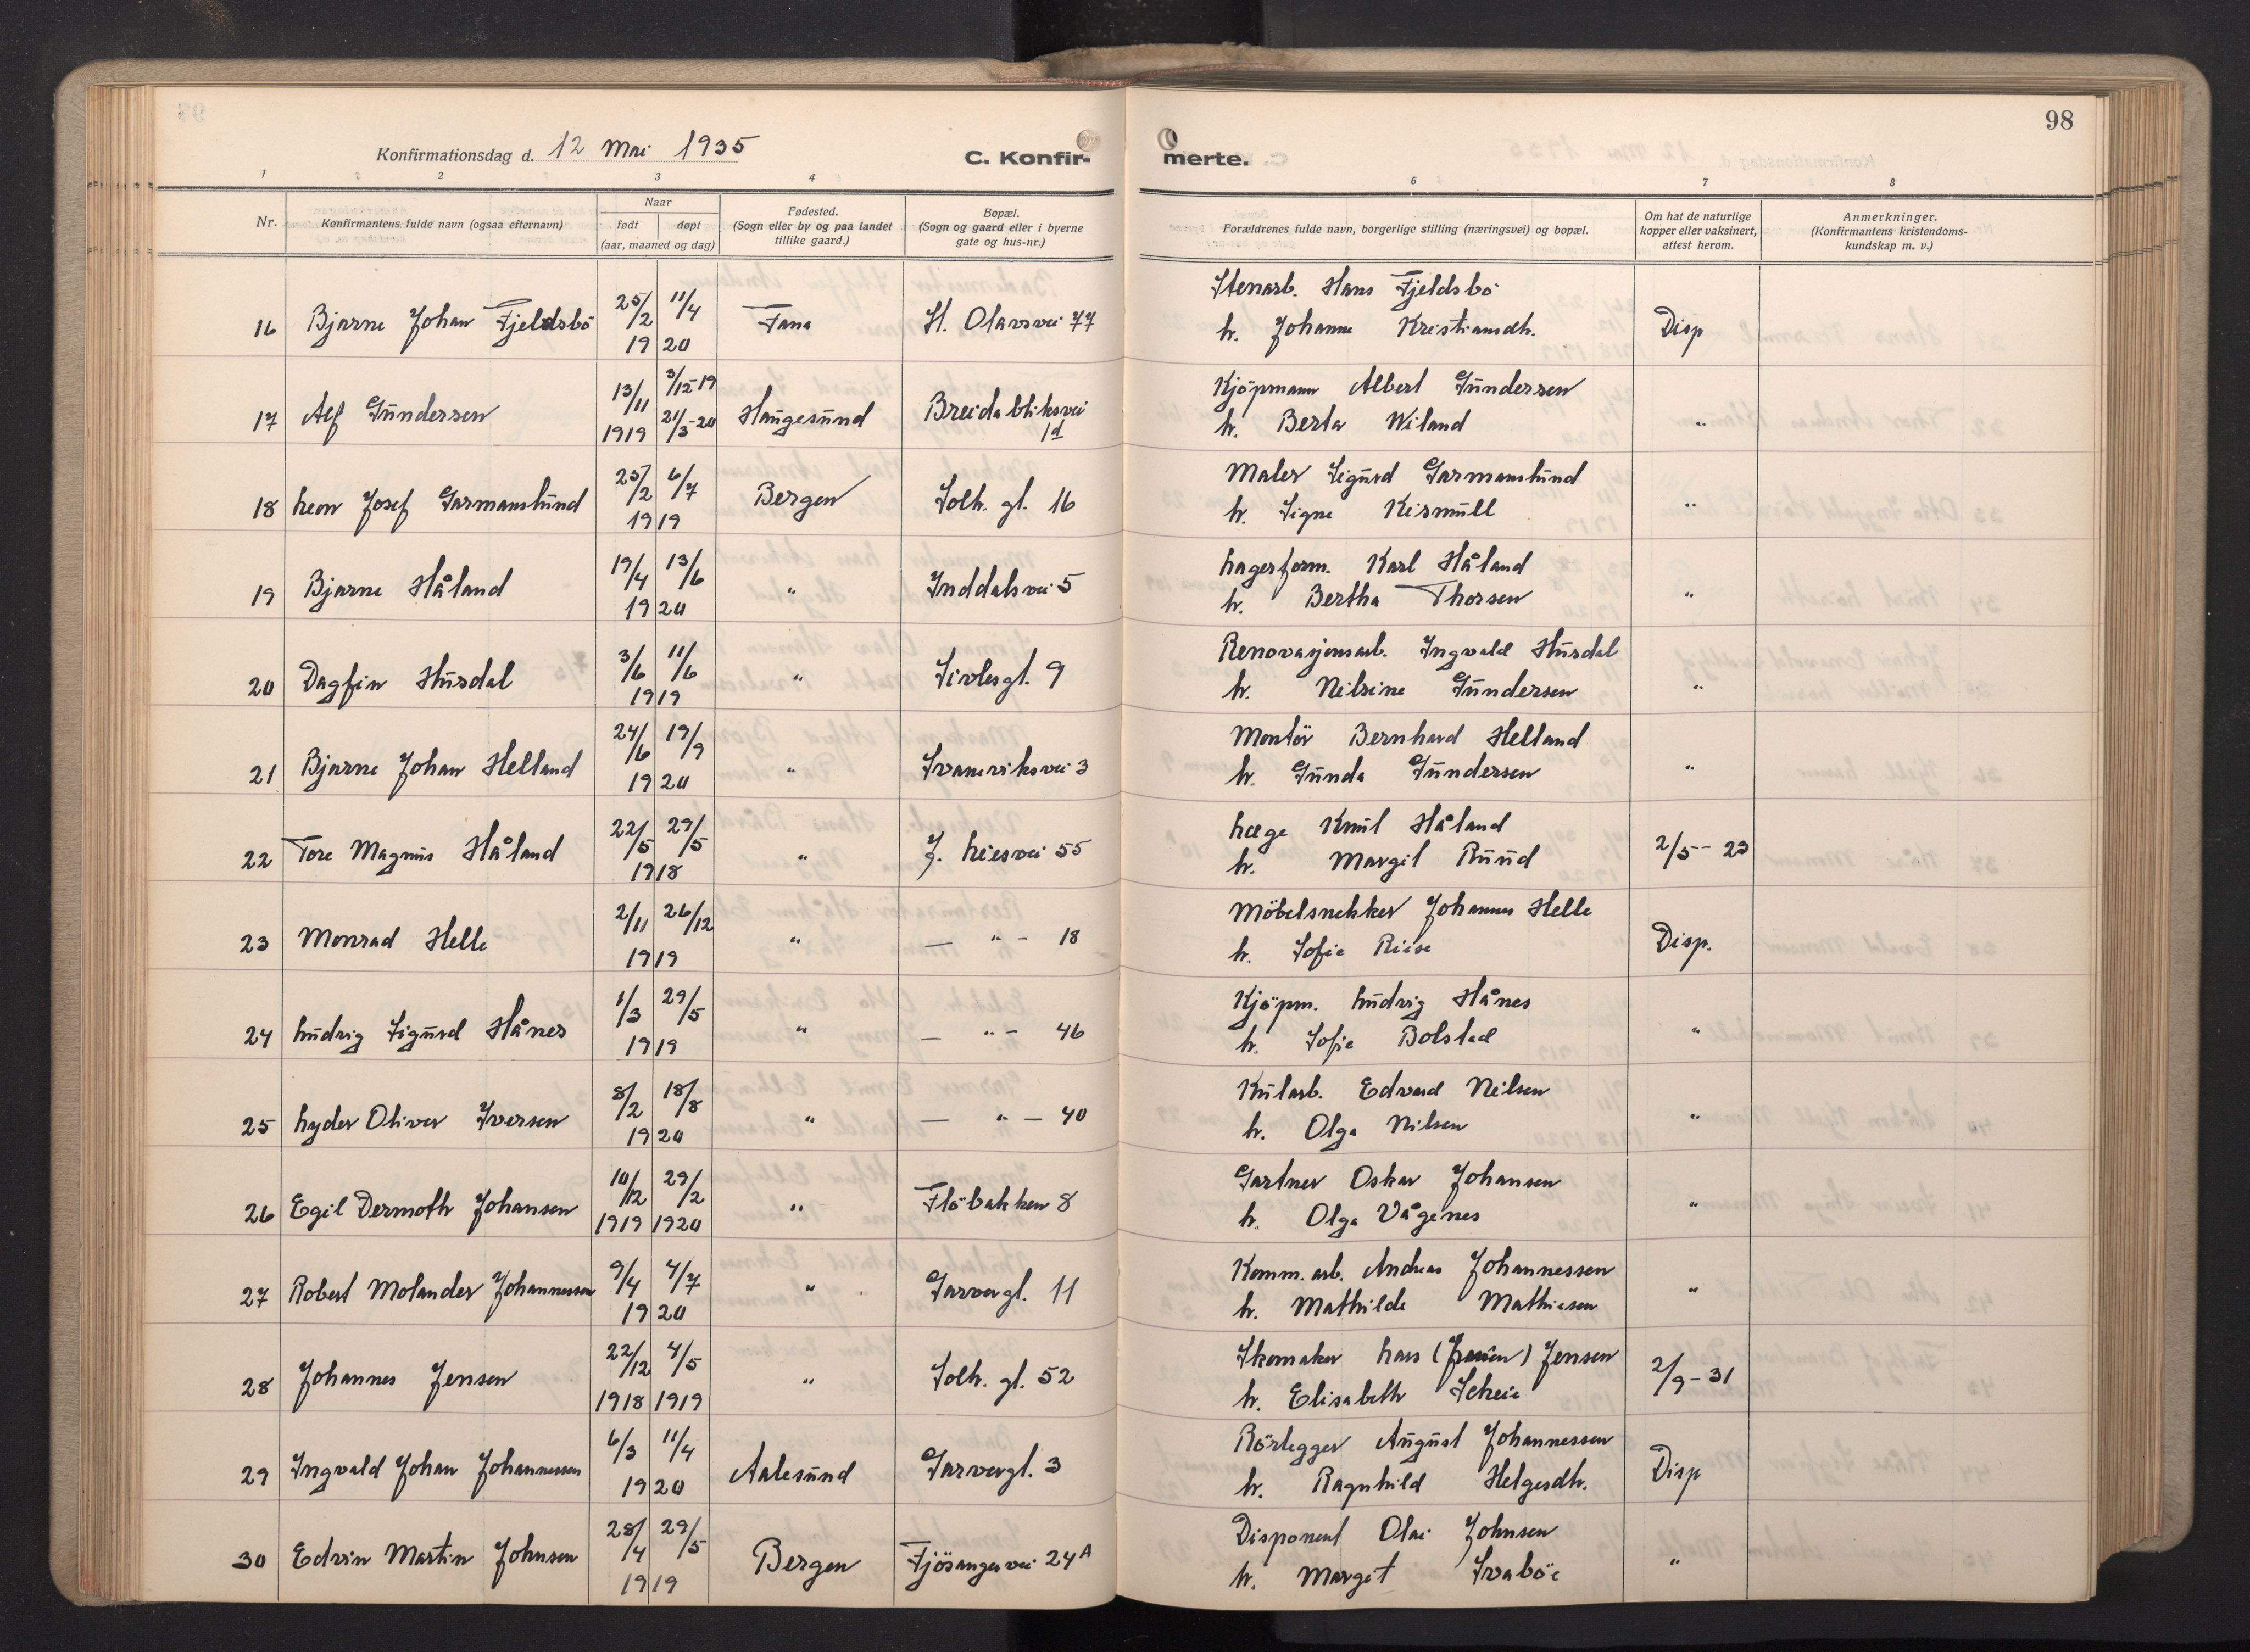 98
Konfirmationsdag d. 12 Mai 1935
C. Konfir-
merte.
1 2 3 4 6 7 8
Nr.
Konfirmantens fulde navn (ogsaa efternavn)
Naar
født døpt
(aar, maaned og dag)
Fødested.
(Sogn eller by og paa landet
tillike gaard.)
Bopæl.
(Sogn og gaard eller i byerne
gate og hus-nr.)
Forældrenes fulde navn, borgerlige stilling (næringsvei) og bopæl.
Om hat de naturlige
kopper eller vaksinert,
attest herom.
Anmerkninger.
(Konfirmantens kristendoms-
kundskap m. v.)
Stenarb. Hans Fjeldsbö
16 Bjarne Johan Fjeldsbö 25/2 11/4 Fana St. Olavsvei 77 h. Johanne Kristiansdh. Disp
19 20
13/11 3/12-19 Kjöpmann Albert Gundersen
17 Alf Gundersen 21/3-20 Haugesund Breidabliksvei h. Berta Wiland "
1919 1d
25/2 6/7 Maler Sigurd Garmanslund
18 Leon Josef Garmanslund Bergen Solh. gt. 16 h. Signe Kismull "
1919
19/4 13/6 Lagerform. Karl Håland
19 Bjarne Håland " Inddalsvei 5 h. Bertha Thorsen "
19 20
3/6 11/6 Renovasjonsarb. Ingvald Husdal
20 Dagfin Husdal " Sivlesgt. 9 h. Nilsine Gundersen "
1919
24/6 19/9 Montör Bernhard Helland
21 Bjarne Johan Helland " Svaneviksvei 3 h. Gunda Gundersen "
19 20
22/5 29/5 Læge Knut Håland
22 Tore Magnus Håland " J. Liesvei 55 h. Margit Ruud 2/5-23
1918
2/11 26/12 Möbelsnekker Johannes Helle
23 Monrad Helle " — " — 18 h. Sofie Riise Disp.
1919
1/3 29/5 Kjöpm. Ludvig Hånes
24 Ludvig Sigurd Hånes " — " — 46 h. Sofie Bolstad "
1919
8/2 18/8 Kularb. Edvard Nilsen
25 Lyder Oliver Iversen " — " — 40 h. Olga Nilsen "
19 20
10/12 29/2 Gartner Oskar Johansen
26 Egil Dermoth Johansen " Flöbakken 8 h. Olga Vågenes "
1919 1920
9/4 4/7 Komm. arb. Andreas Johannessen
27 Robert Molander Johannessen " Garvergt. 11 h. Mathilde Mathiesen "
19 20
22/12 4/5 Skomaker Lars Jensen
28 Johannes Jensen " Solh. gt. 52 h. Elisabeth Scheie 2/9-31
1918 1919
6/3 11/4 Rörlegger August Johannessen
29 Ingvald Johan Johannessen Aalesund Garvergt. 3 h. Ragnhild Helgesdh. Disp
19 20
28/4 29/5 Disponent Olai Johnsen
30 Edvin Martin Johnsen Bergen Fjösangervei 24A h. Margit Svaböe "
1919